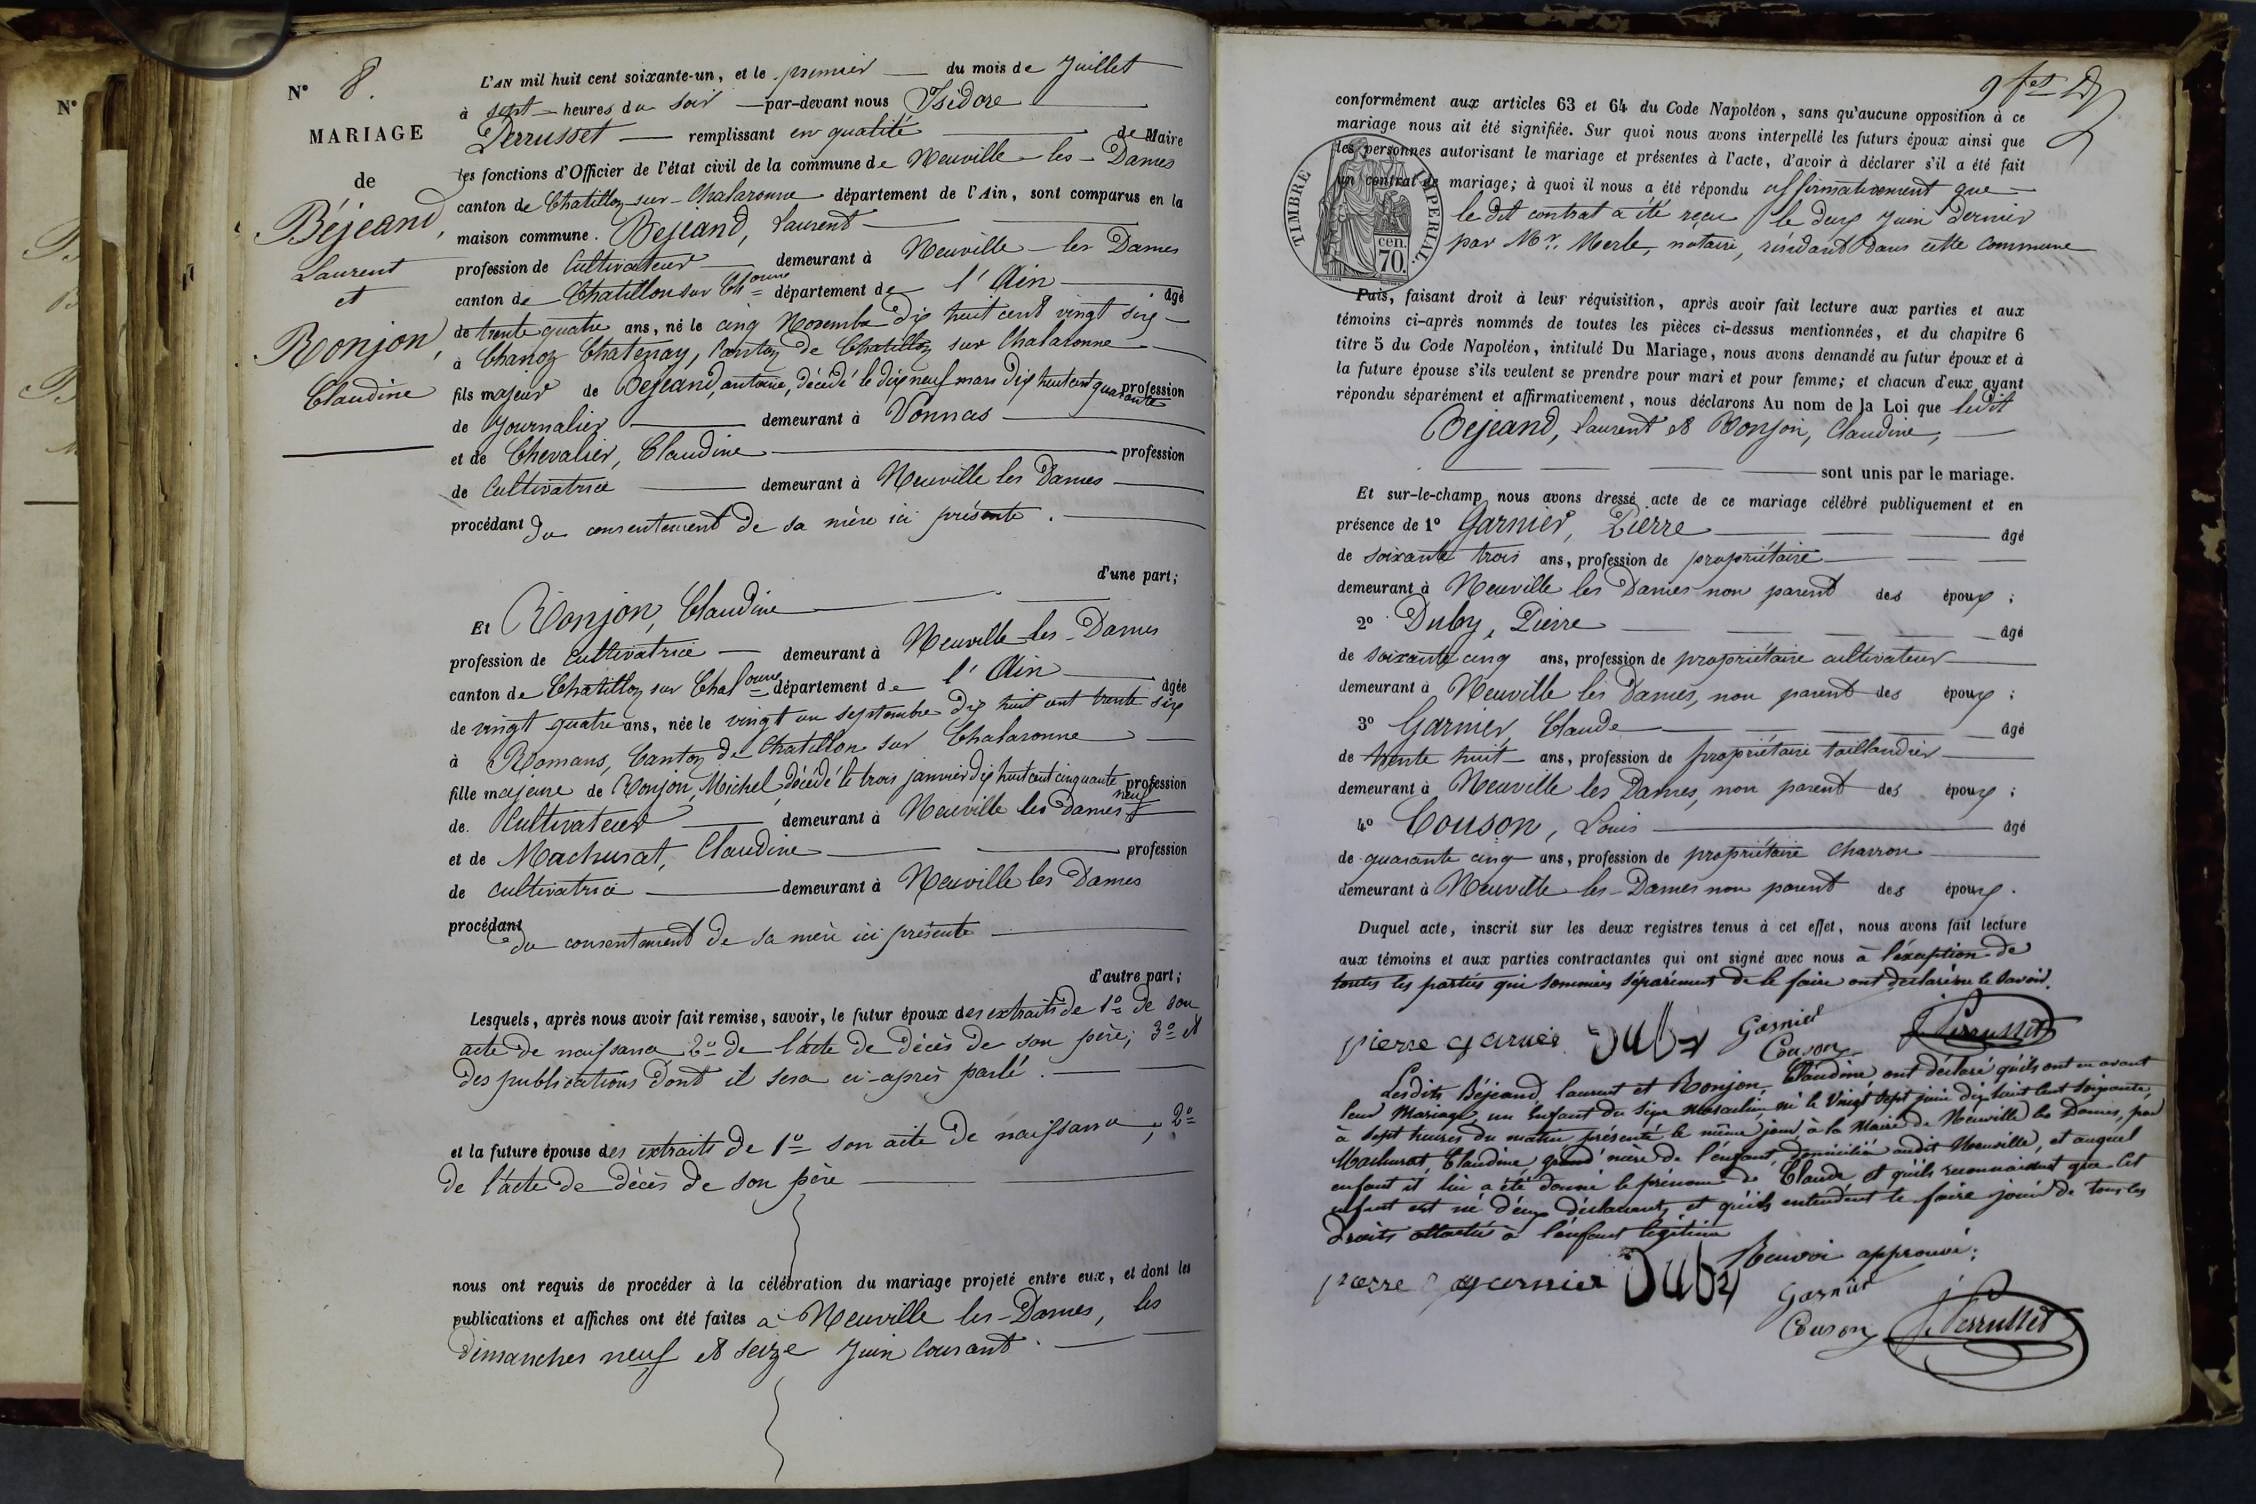 N°
N° 8.
MARIAGE
de
Béjeand,
Laurent
et
Ronjon,
Claudine
L'AN mil huit cent soixante-un, et le premier du mois de Juillet
à sept heures du soir par-devant nous Isidore
Perrusset remplissant en qualité de Maire
les fonctions d'Officier de l'état civil de la commune de Neuville-les-Dames
canton de Chatillon-sur-Chalaronne département de l'Ain, sont comparus en la
maison commune. Bejeand, Laurent
profession de Cultivateur demeurant à Neuville-les Dames
canton de Chatillon sur Chonne département de l'Ain âgé
de trente quatre ans, né le cinq Novembre dix huit cent vingt six
à Chanoz Chatenay, Canton de Chatillon sur Chalaronne
fils majeur de Bejeand, antoine, décédé le dix neuf mars dix huit cent quarante profession
de Journalier demeurant à Vonnas
et de Chevalier, Claudine profession
de Cultivatrice demeurant à Neuville les Dames
procédant du consentement de sa mère ici présente.
d'une part;
Et Ronjon, Claudine
profession de Cultivatrice demeurant à Neuville-les-Dames
canton de Chatillon sur Chalonne département de l'Ain âgée
de vingt quatre ans, née le vingt un septembre dix huit cent trente six
à Romans, Canton de Chatillon sur Chalaronne
fille majeure de Ronjon, Michel, décédé le trois janvier dix huit cent cinquante neuf profession
de Cultivateur demeurant à Neuville les Dames
et de Machurat, Claudine profession
de cultivatrice demeurant à Neuville les Dames
procédant du consentement de sa mère ici présente
d'autre part;
Lesquels, après nous avoir fait remise, savoir, le futur époux des extraits de 1° de son
acte de naissance 2° de l'acte de décès de son père; 3° et
des publications dont il sera ci-après parlé.
et la future épouse des extraits de 1° son acte de naissance, 2°
de l'acte de décès de son père
nous ont requis de procéder à la célébration du mariage projeté entre eux, et dont les
publications et affiches ont été faites à Neuville les-Dames, les
dimanches neuf et seize Juin courant.
9
conformément aux articles 63 et 64 du Code Napoléon, sans qu'aucune opposition à ce
mariage nous ait été signifiée. Sur quoi nous avons interpellé les futurs époux ainsi que
les personnes autorisant le mariage et présentes à l'acte, d'avoir à déclarer s'il a été fait
un contrat de mariage; à quoi il nous a été répondu affirmativement que
le dit contrat a été reçu le deux Juin dernier
par Mr. Merle, notaire, résidant dans cette commune
TIMBRE IMPERIAL.
70 cen.
Puis, faisant droit à leur réquisition, après avoir fait lecture aux parties et aux
témoins ci-après nommés de toutes les pièces ci-dessus mentionnées, et du chapitre 6
titre 5 du Code Napoléon, intitulé Du Mariage, nous avons demandé au futur époux et à
la future épouse s'ils veulent se prendre pour mari et pour femme; et chacun d'eux ayant
répondu séparément et affirmativement, nous déclarons Au nom de la Loi que ledit
Bejeand, Laurent et Ronjon, Claudine,
sont unis par le mariage.
Et sur-le-champ nous avons dressé acte de ce mariage célébré publiquement et en
présence de 1° Garnier, Pierre âgé
de soixante trois ans, profession de propriétaire
demeurant à Neuville les Dames non parent des époux;
2° Duby, Pierre âgé
de soixante cinq ans, profession de propriétaire cultivateur
demeurant à Neuville les Dames, non parent des époux;
3° Garnier, Claude âgé
de trente huit ans, profession de propriétaire taillandier
demeurant à Neuville les Dames, non parent des époux;
4° Couson, Louis âgé
de quarante cinq ans, profession de propriétaire charron
demeurant à Neuville les-Dames non parent des époux.
Duquel acte, inscrit sur les deux registres tenus à cet effet, nous avons fait lecture
aux témoins et aux parties contractantes qui ont signé avec nous à l'éxeption de
toutes les parties qui sommées séparément de le faire ont déclaré ne le savoir.
pierre garnier Duby Garnier
Couson J. Perrusset
Lesdits Béjeand, laurent et Ronjon, Claudine ont déclaré qu'ils ont eu avant
leur Mariage, un Enfant du sexe masculin, né le Vingt sept juin dix huit cent soixante,
à sept heures du matin, présenté le même jour, à la Mairie de Neuville les Dames, par
Machurat, Claudine, grand'mère de l'enfant, domiciliée audit Neuville, et auquel
enfant il lui a été donné le prénom de Claude et qu'ils reconnaissent que cet
enfant est né d'eux déclarants, et qu'ils entendent le faire jouir de tous les
droits attachés à l'enfant légitime
Renvoi approuvé:
pierre garnier Duby Garnier
Couson J. Perrusset